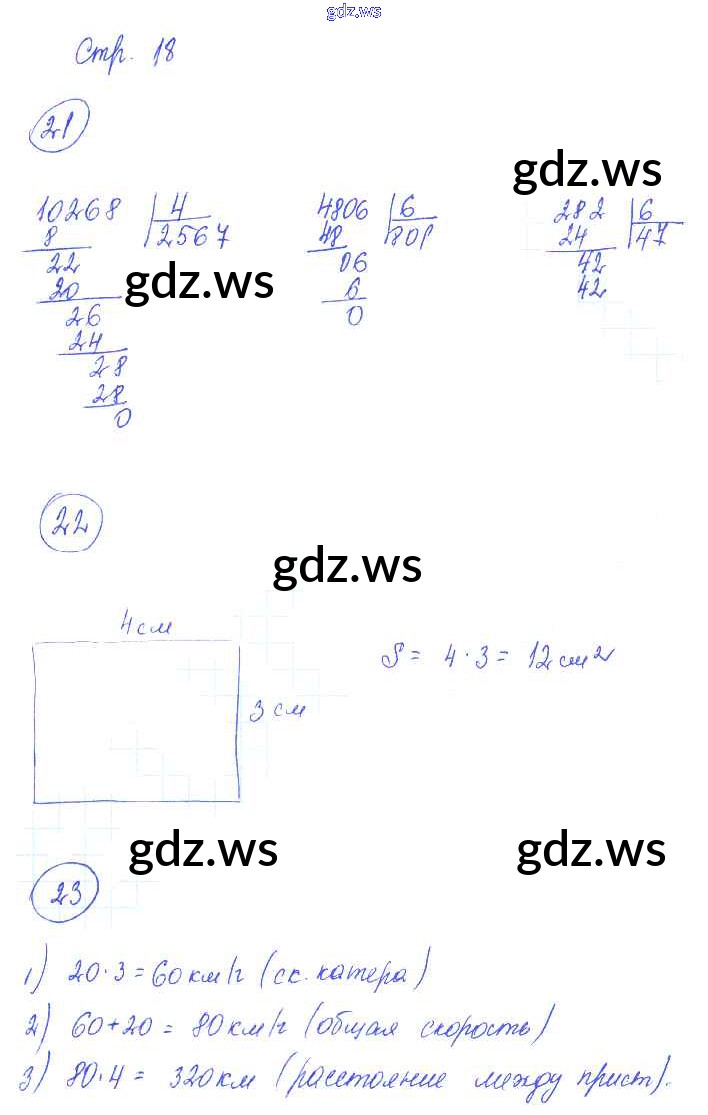 gdz.ws
Стр. 18
21
gdz.ws
10268 4
8 2567
22
20
26
24
28
28
0
4806 6
48 801
06
6
0
282 6
24 47
42
42
gdz.ws
22
gdz.ws
4см
3 см
S = 4 · 3 = 12см²
gdz.ws gdz.ws
23
1) 20·3=60км/ч (ск. катера)
2) 60+20 = 80км/ч (общая скорость)
3) 80·4 = 320км (расстояние между прист).